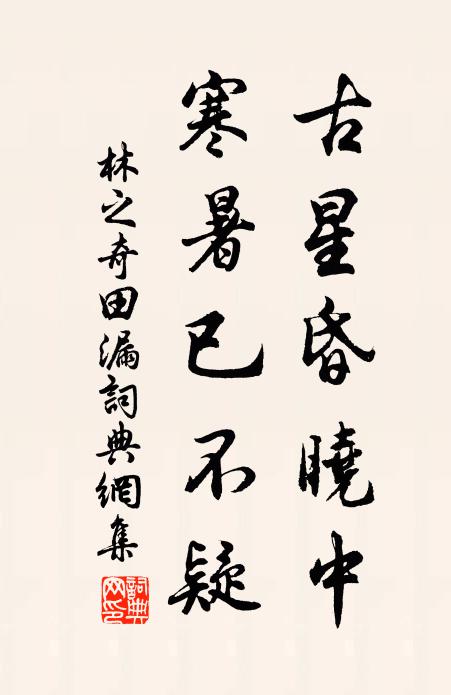 古星昏曉中
寒暑已不疑
林之奇田漏詞典網集
詞典網印